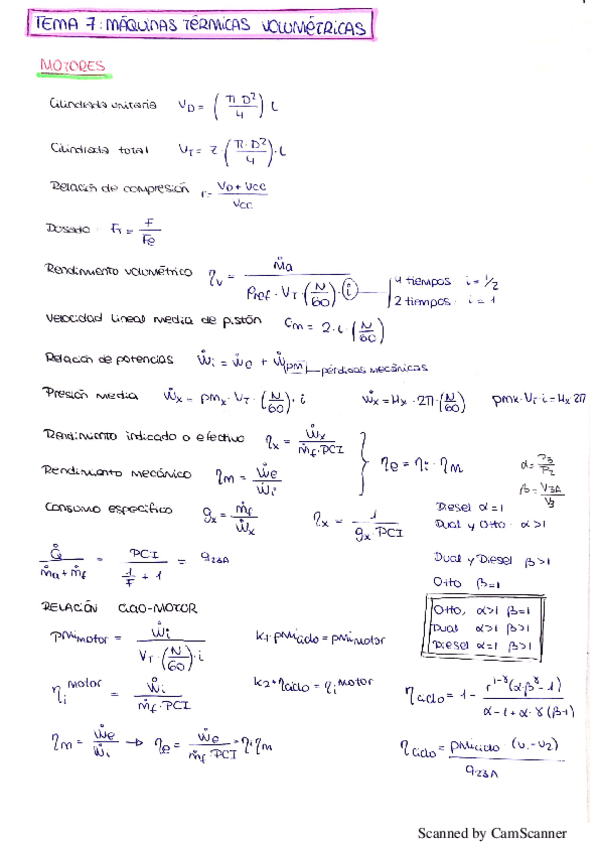 TEMA 7: MÁQUINAS TÉRMICAS VOLUMÉTRICAS
MOTORES
Cilindrada unitaria V_D = (π·D²/4) L
Cilindrada total V_T = z·(π·D²/4)·L
Relación de compresión r = (V_D + V_CC)/V_CC
Dosado F_r = F/F_e
Rendimiento volumétrico η_v = ṁa/(ρref·V_T·(N/60)·i) 4 tiempos i = 1/2
2 tiempos i = 1
Velocidad lineal media de pistón C_m = 2·L·(N/60)
Relación de potencias Ẇi = Ẇe + Ẇpm pérdidas mecánicas
Presión media Ẇx = pmx·V_T·(N/60)·i Ẇx = Mx·2π·(N/60) pmx·V_T·i = Mx 2π
Rendimiento indicado o efectivo η_x = Ẇx/(ṁf·PCI)
η_e = η_i·η_m
α = P3/P2
Rendimiento mecánico η_m = Ẇe/Ẇi
β = V3A/V3
Consumo específico g_x = ṁf/Ẇx η_x = 1/(g_x·PCI)
Diesel α=1
Dual y Otto α>1
Q̇/(ṁa+ṁf) = PCI/(1/F + 1) = q23A
Dual y Diesel β>1
Otto β=1
RELACIÓN CICLO-MOTOR
Otto, α>1 β=1
Dual α>1 β>1
Diesel α=1 β>1
pmi motor = Ẇi/(V_T·(N/60)·i) K1·pmi ciclo = pmi motor
η_i motor = Ẇi/(ṁf·PCI) K2·η ciclo = η_i motor
η ciclo = 1 - r^(1-γ)(α·β^γ-1)/(α-1+α·γ(β-1))
η_m = Ẇe/Ẇi → η_e = Ẇe/(ṁf·PCI) = η_i·η_m
η ciclo = pmi ciclo·(v1-v2)/q23A
Scanned by CamScanner